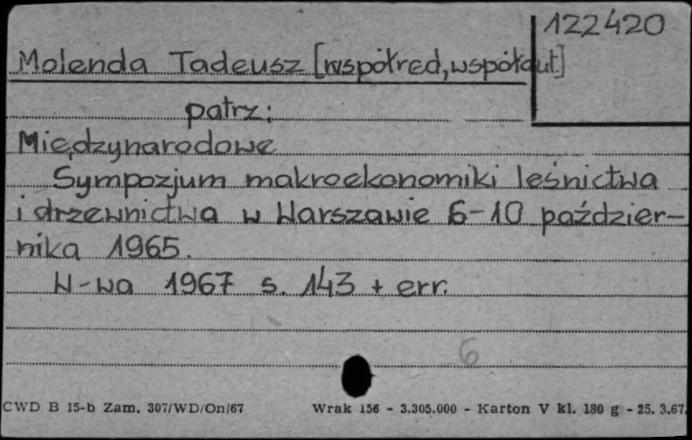 122420
Molenda Tadeusz [współred, współaut]
patrz:
Międzynarodowe
Sympozjum makroekonomiki leśnictwa
i drzewnictwa w Warszawie 6-10 paździer-
nika 1965.
W-wa 1967 s. 143 + err.
6
CWD B 15-b Zam. 307/WD/On/67 Wrak 156 - 3.305.000 - Karton V kl. 180 g - 25. 3.67.